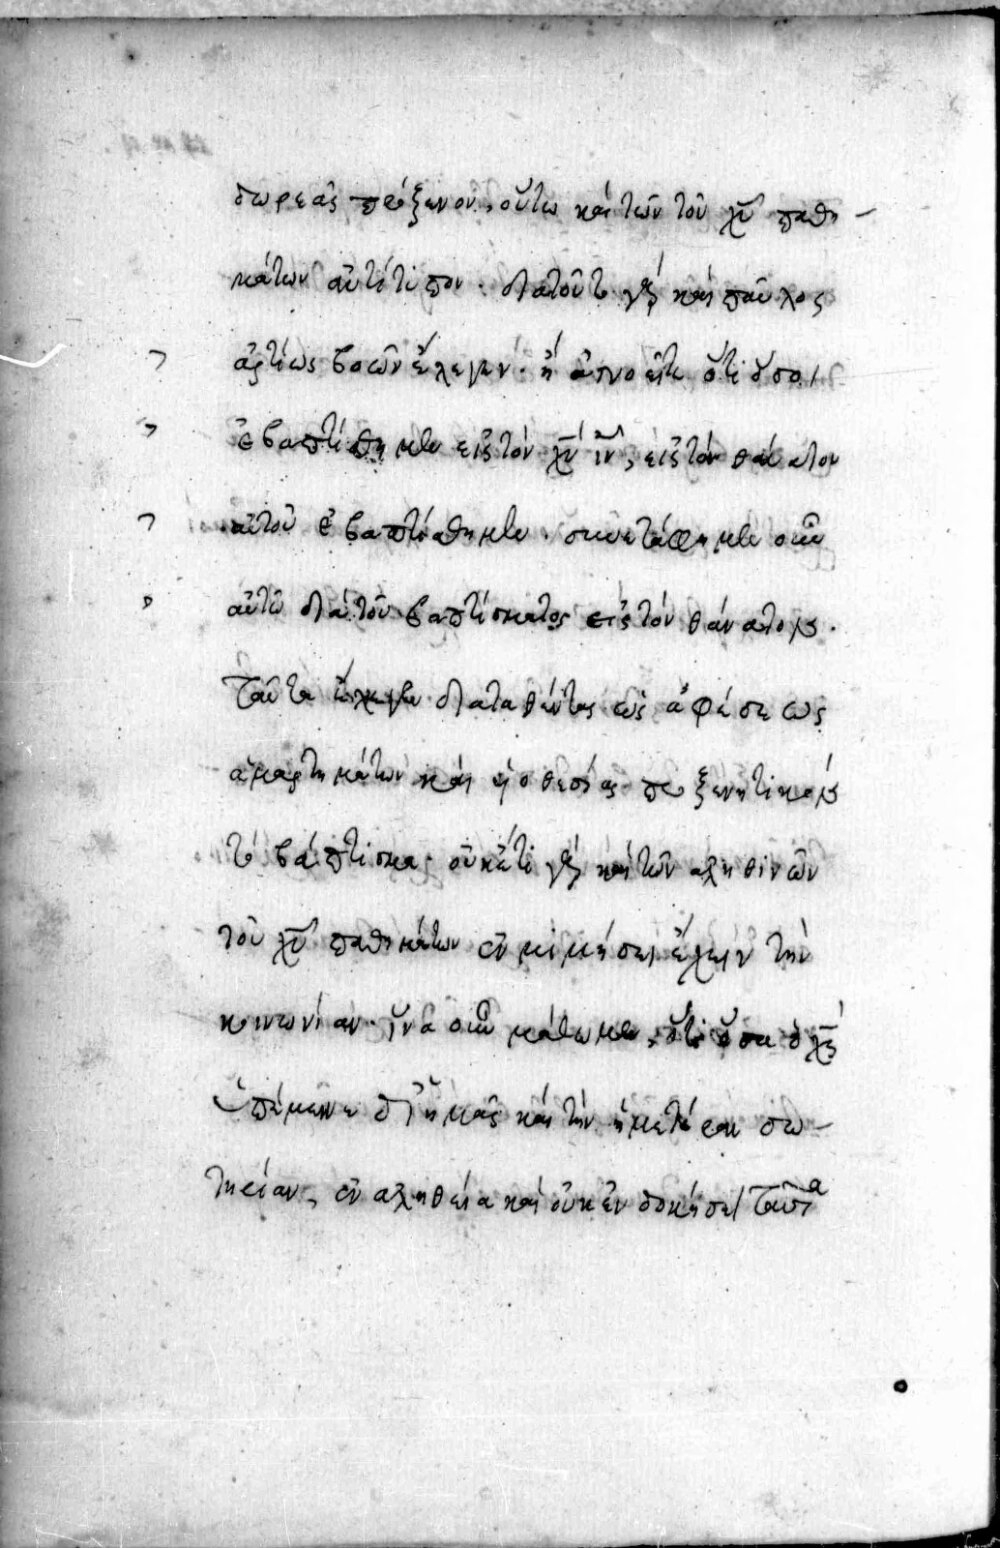 δωρεᾶς πρόξενον, οὕτω καὶ τῶν τοῦ χῦ παθη-
μάτων ἀντίτυπον. διατοῦτο γὰρ καὶ παῦλος
ἀρτίως βοῶν ἔλεγεν. ἢ ἀγνοεῖτε ὅτι ὅσοι
ἐβαπτίσθημεν εἰς τὸν χν ιν, εἰς τὸν θάνατον
αὐτοῦ ἐβαπτίσθημεν. συνετάφημεν οὖν
αὐτῶ διὰ τοῦ βαπτίσματος εἰς τὸν θάνατον.
ταῦτα ἔλεγεν διαταθέντας ὡς ἀφέσεως
ἁμαρτημάτων καὶ υἱοθεσίας προξενητικὸν
τὸ βάπτισμα. οὐκέτι γὰρ καὶ τῶν ἀληθινῶν
τοῦ χῦ παθημάτων ἐν μιμήσει ἔχειν τὴν
κοινωνίαν. ἵνα οὖν μάθωμεν, ὅτι ὅσα ὁ χς
ὑπέμεινε δι' ἡμᾶς καὶ τὴν ἡμετέραν σω-
τηρίαν, ἐν ἀληθεία καὶ οὐκ ἐν δοκήσει ταῦτα